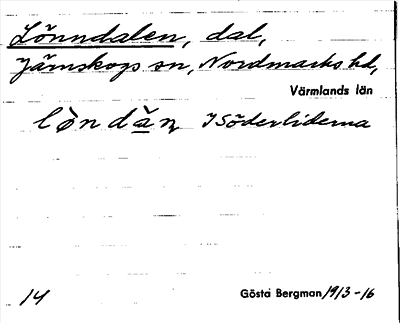 Lönndalen, dal,
Järnskogs sn, Nordmarks hd,
Värmlands län
lön dàn I Söderliderna
14 Gösta Bergman 1913-16